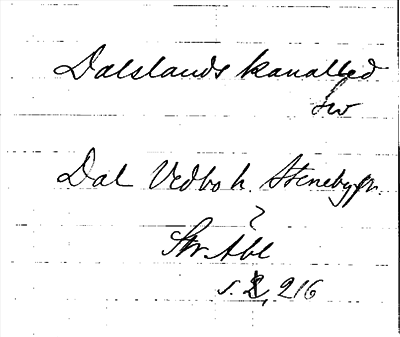 Dalslands kanalled
Sw
Dal Vedbo h. Steneby sn.
?
Sw Abl
s. 2, 216